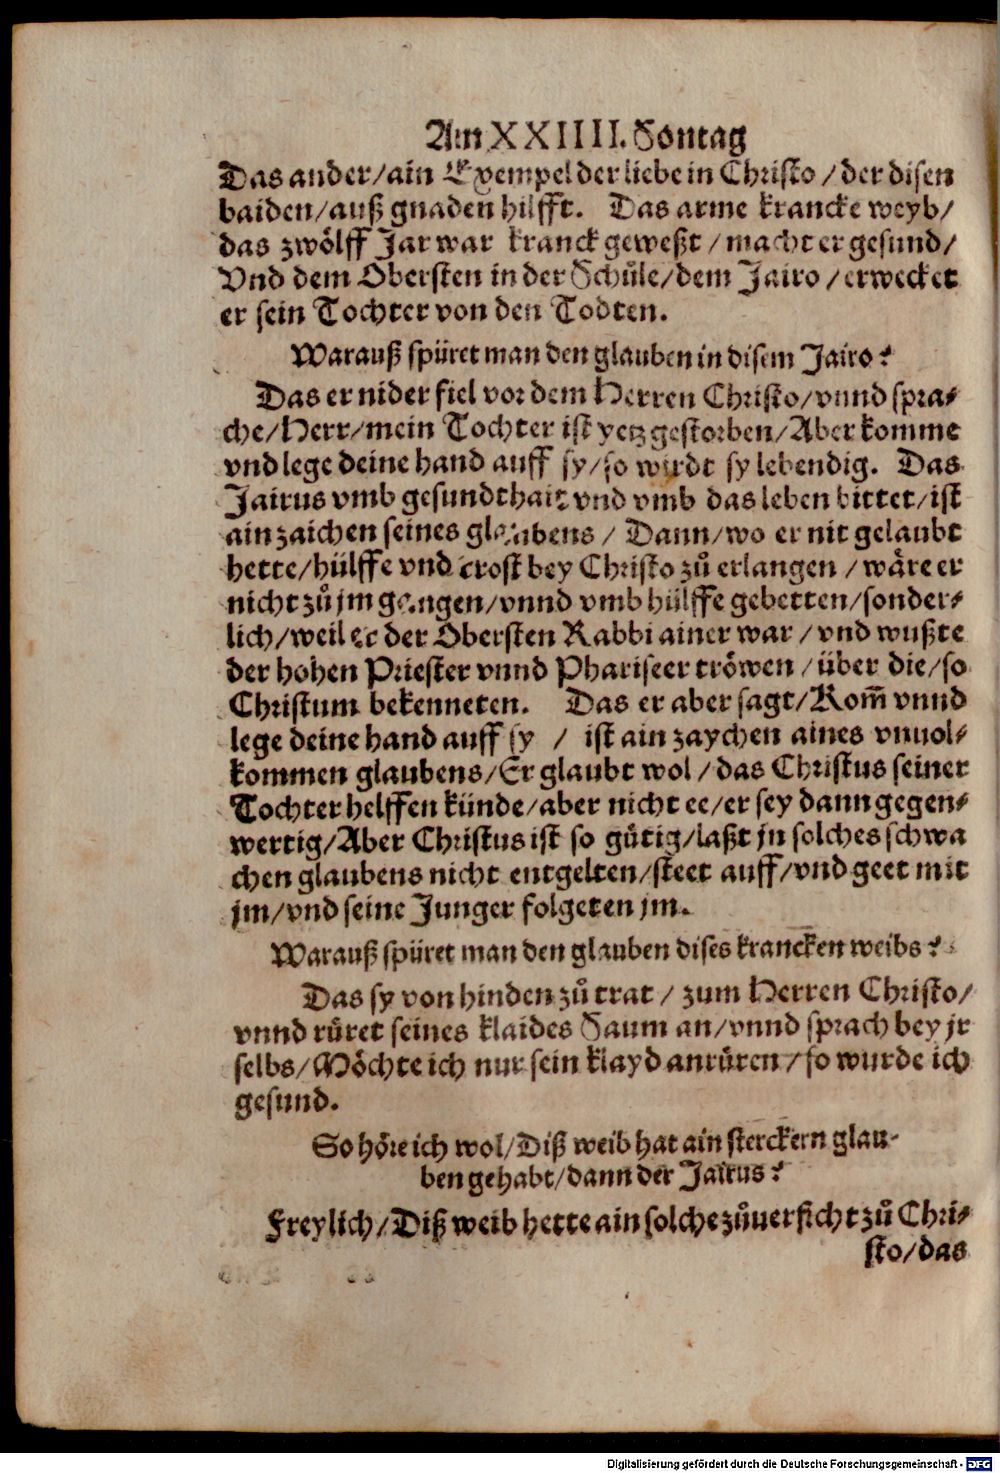 Am XXIIII. Sontag
Das ander/ain Exempel der liebe in Christo/der disen
baiden/auß gnaden hilfft. Das arme krancke weyb/
das zwölff Jar war kranck geweßt/macht er gesund/
Vnd dem Obersten in der Schůle/dem Jairo/erwecket
er sein Tochter von den Todten.
Warauß spüret man den glauben in disem Jairo?
Das er nider fiel vor dem Herren Christo/vnnd spra-
che/Herr/mein Tochter ist yetz gestorben/Aber komme
vnd lege deine hand auff sy/so wirdt sy lebendig. Das
Jairus vmb gesundthait vnd vmb das leben bittet/ist
ain zaichen seines glaubens/ Dann/wo er nit gelaubt
hette/hülffe vnd trost bey Christo zů erlangen/wäre er
nicht zů jm gangen/vnnd vmb hülffe gebetten/sonder-
lich/weil er der Obersten Rabbi ainer war/vnd wußte
der hohen Priester vnnd Phariseer tröwen/über die/so
Christum bekenneten. Das er aber sagt/Kom̃ vnnd
lege deine hand auff sy / ist ain zaychen aines vnuol-
kommen glaubens/Er glaubt wol/das Christus seiner
Tochter helffen künde/aber nicht ee/er sey dann gegen-
wertig/Aber Christus ist so gůtig/laßt jn solches schwa
chen glaubens nicht entgelten/steet auff/vnd geet mit
jm/vnd seine Junger folgeten jm.
Warauß spüret man den glauben dises krancken weibs?
Das sy von hinden zů trat/ zum Herren Christo/
vnnd růret seines klaides Saum an/vnnd sprach bey jr
selbs/Möchte ich nur sein klayd anrůren/so wurde ich
gesund.
So höre ich wol/Diß weib hat ain sterckern glau-
ben gehabt/dann der Jairus?
Freylich/Diß weib hette ain solche zůuersicht zů Chri-
sto/das
Digitalisierung gefördert durch die Deutsche Forschungsgemeinschaft - DFG